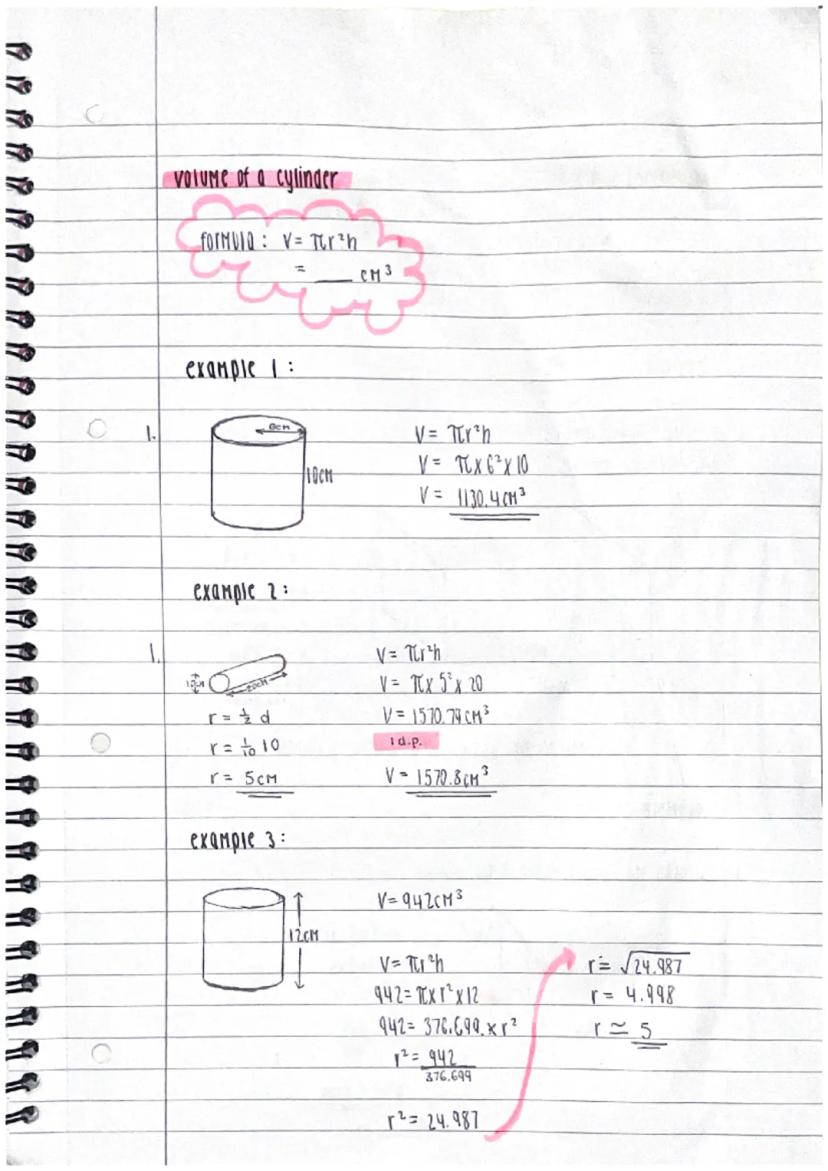 volume of a cylinder
formula : V = πr²h
= ___ cm³
example 1 :
1.
10cm
V = πr²h
V = π x 6² x 10
V = 1130.4cm³
example 2 :
1.
20cm
r = ½ d
r = 1/10 10
r = 5cm
V = πr²h
V = π x 5² x 20
V = 1570.79cm³
1 d.p.
V = 1570.8cm³
example 3 :
12cm
V = 942cm³
V = πr²h
942 = π x r² x 12
942 = 376.699. x r²
r² = 942
376.699
r² = 24.987
r = √24.987
r = 4.998
r ≃ 5